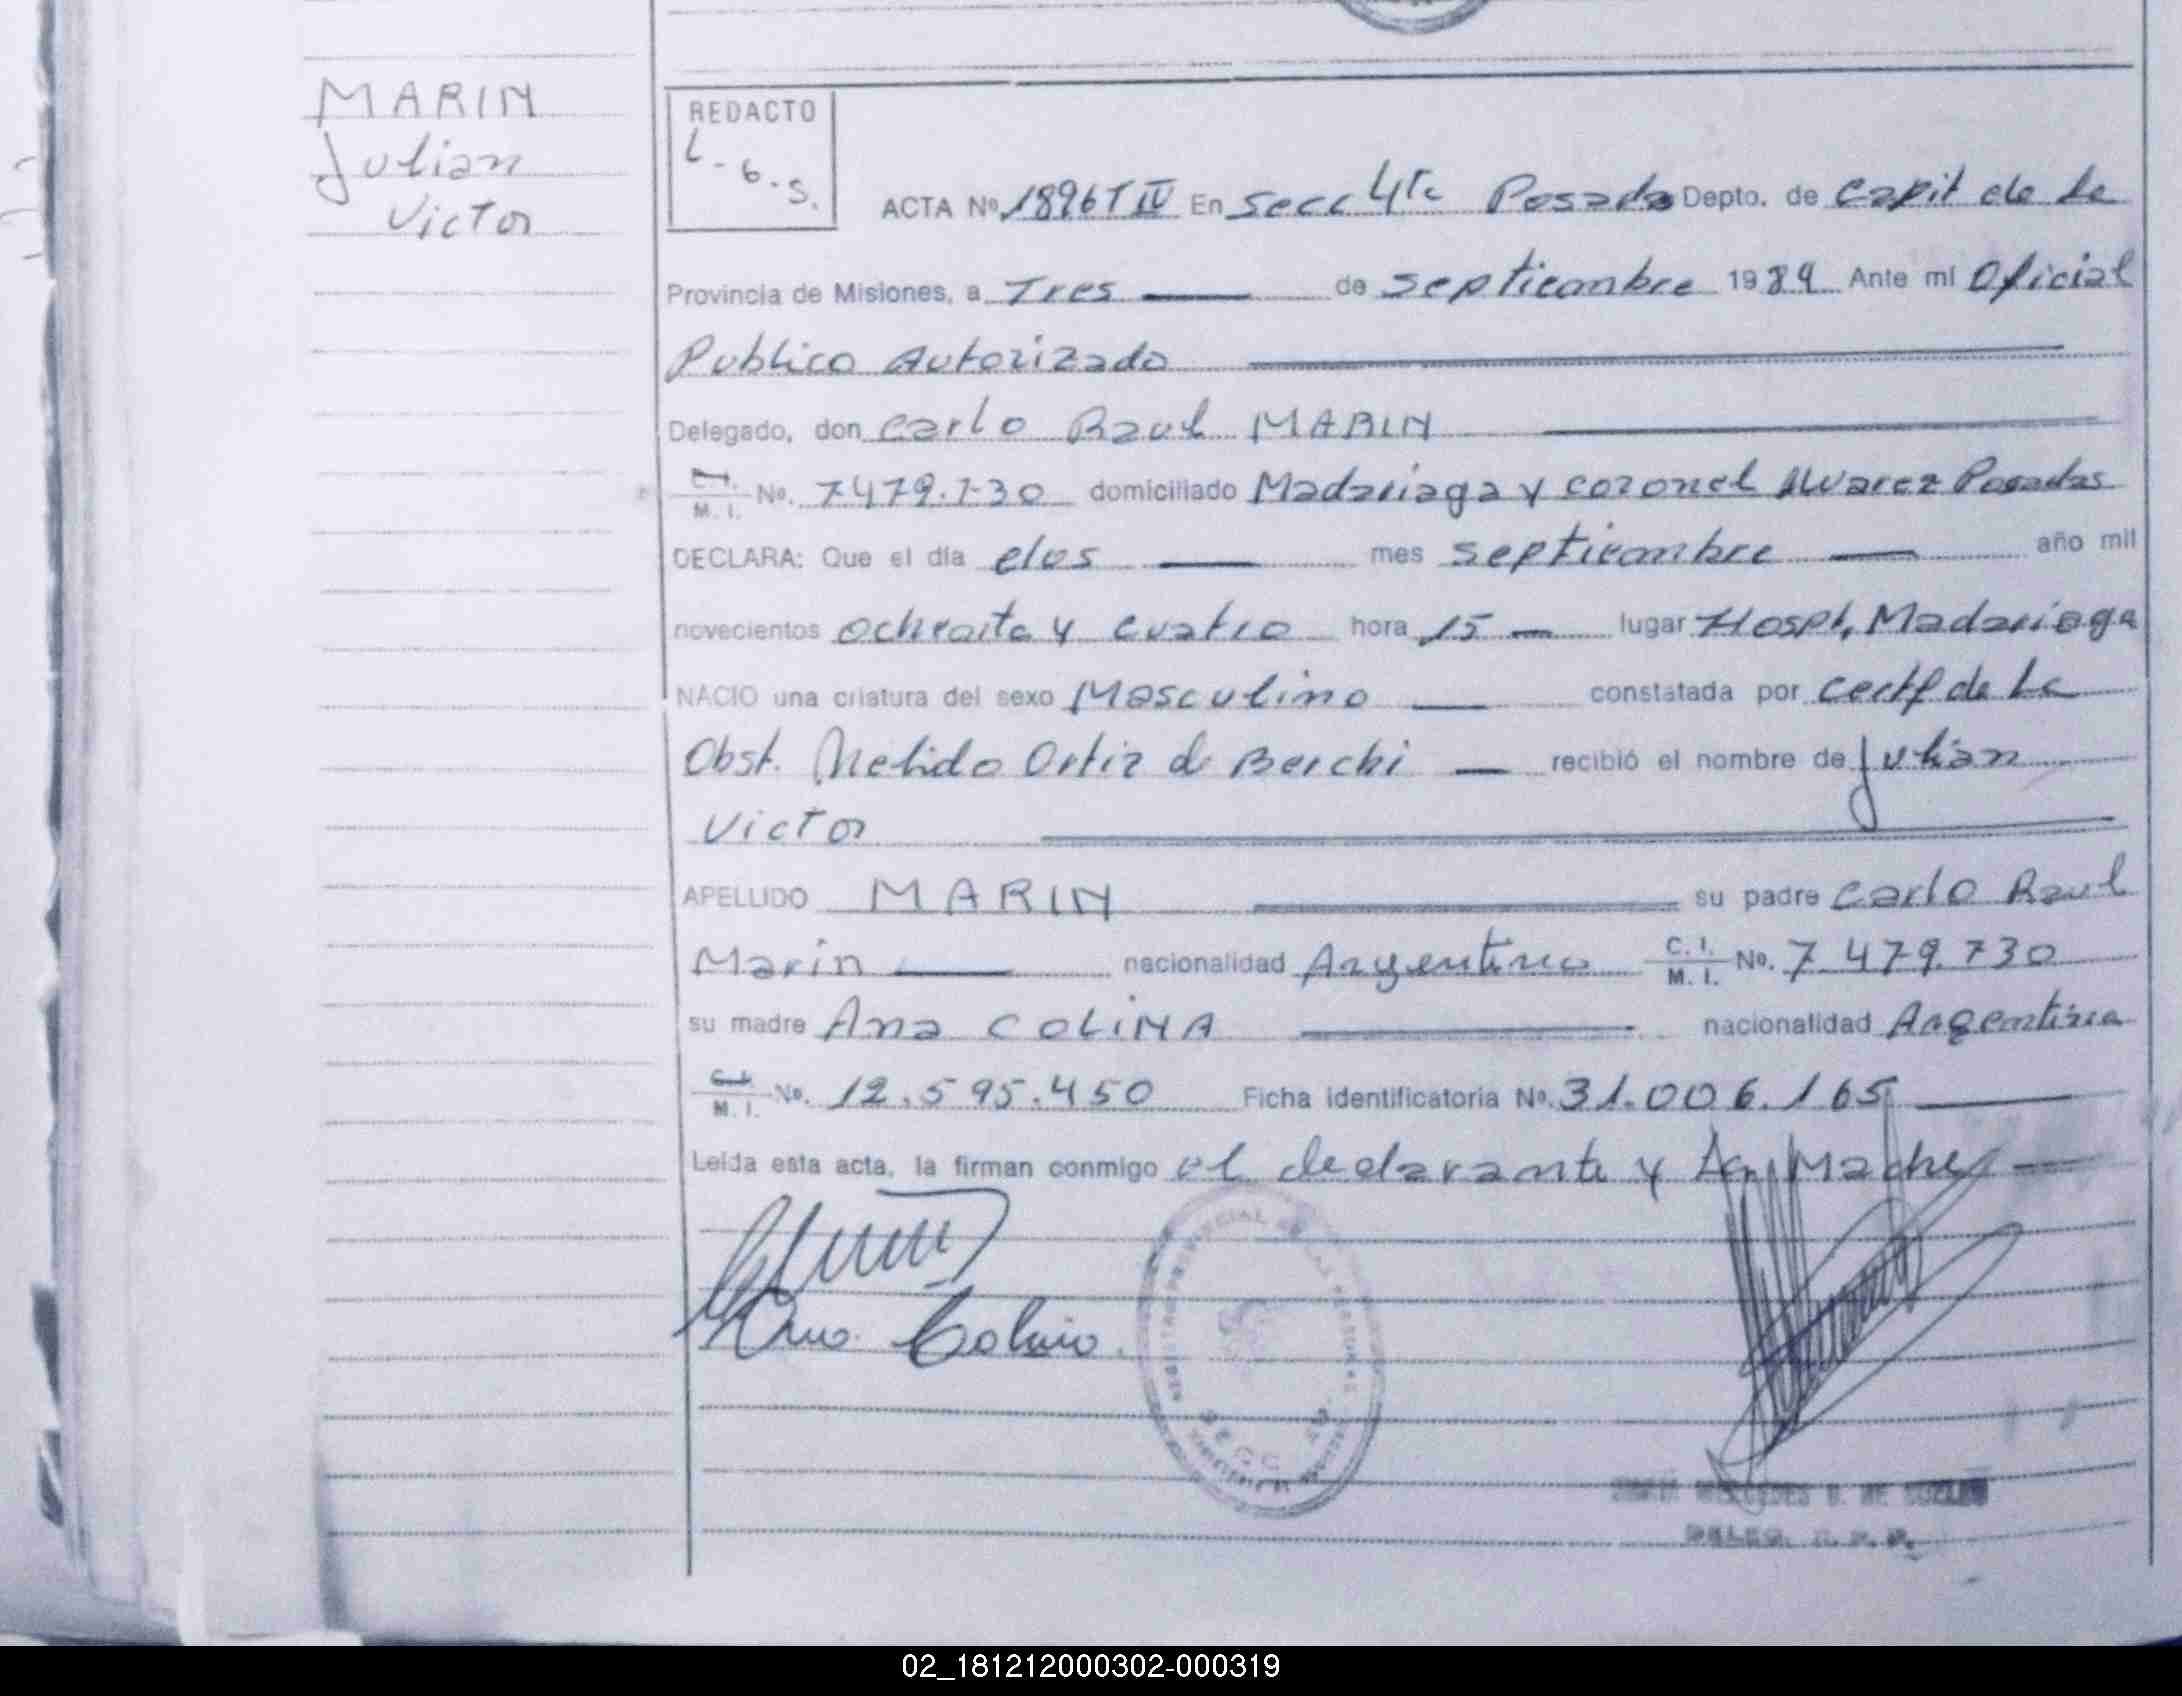 MARIN
Julian
Victor
REDACTO
L-G.S.
ACTA Nº 1896 T IV En secc 4ta Posadas Depto. de Capit de la
Provincia de Misiones, a Tres de septiembre 1984 Ante mí Oficial
Publico Autorizado
Delegado, don Carlo Raul MARIN
C.I. M. I. No. 7479.730 domiciliado Madariaga y Coronel Alvarez Posadas
DECLARA: Que el día dos mes septiembre año mil
novecientos ochenta y cuatro hora 15 lugar Hospt, Madariaga
NACIO una criatura del sexo Masculino constatada por certf de la
Obst. Nelida Ortiz de Berchi recibió el nombre de Julian
Victor
APELLIDO MARIN su padre Carlo Raul
Marin nacionalidad Argentino C. I. M. I. No. 7 479.730
su madre Ana COLINA nacionalidad Argentina
C.I. M. I. No. 12.595.450 Ficha identificatoria Nº. 31.006.165
Leída esta acta, la firman conmigo el declarante y la Madre
Ana Colina
REGISTRO PROVINCIAL DE LAS PERSONAS
SECC. 4a.
DELEG. R. P. P.
02_181212000302-000319